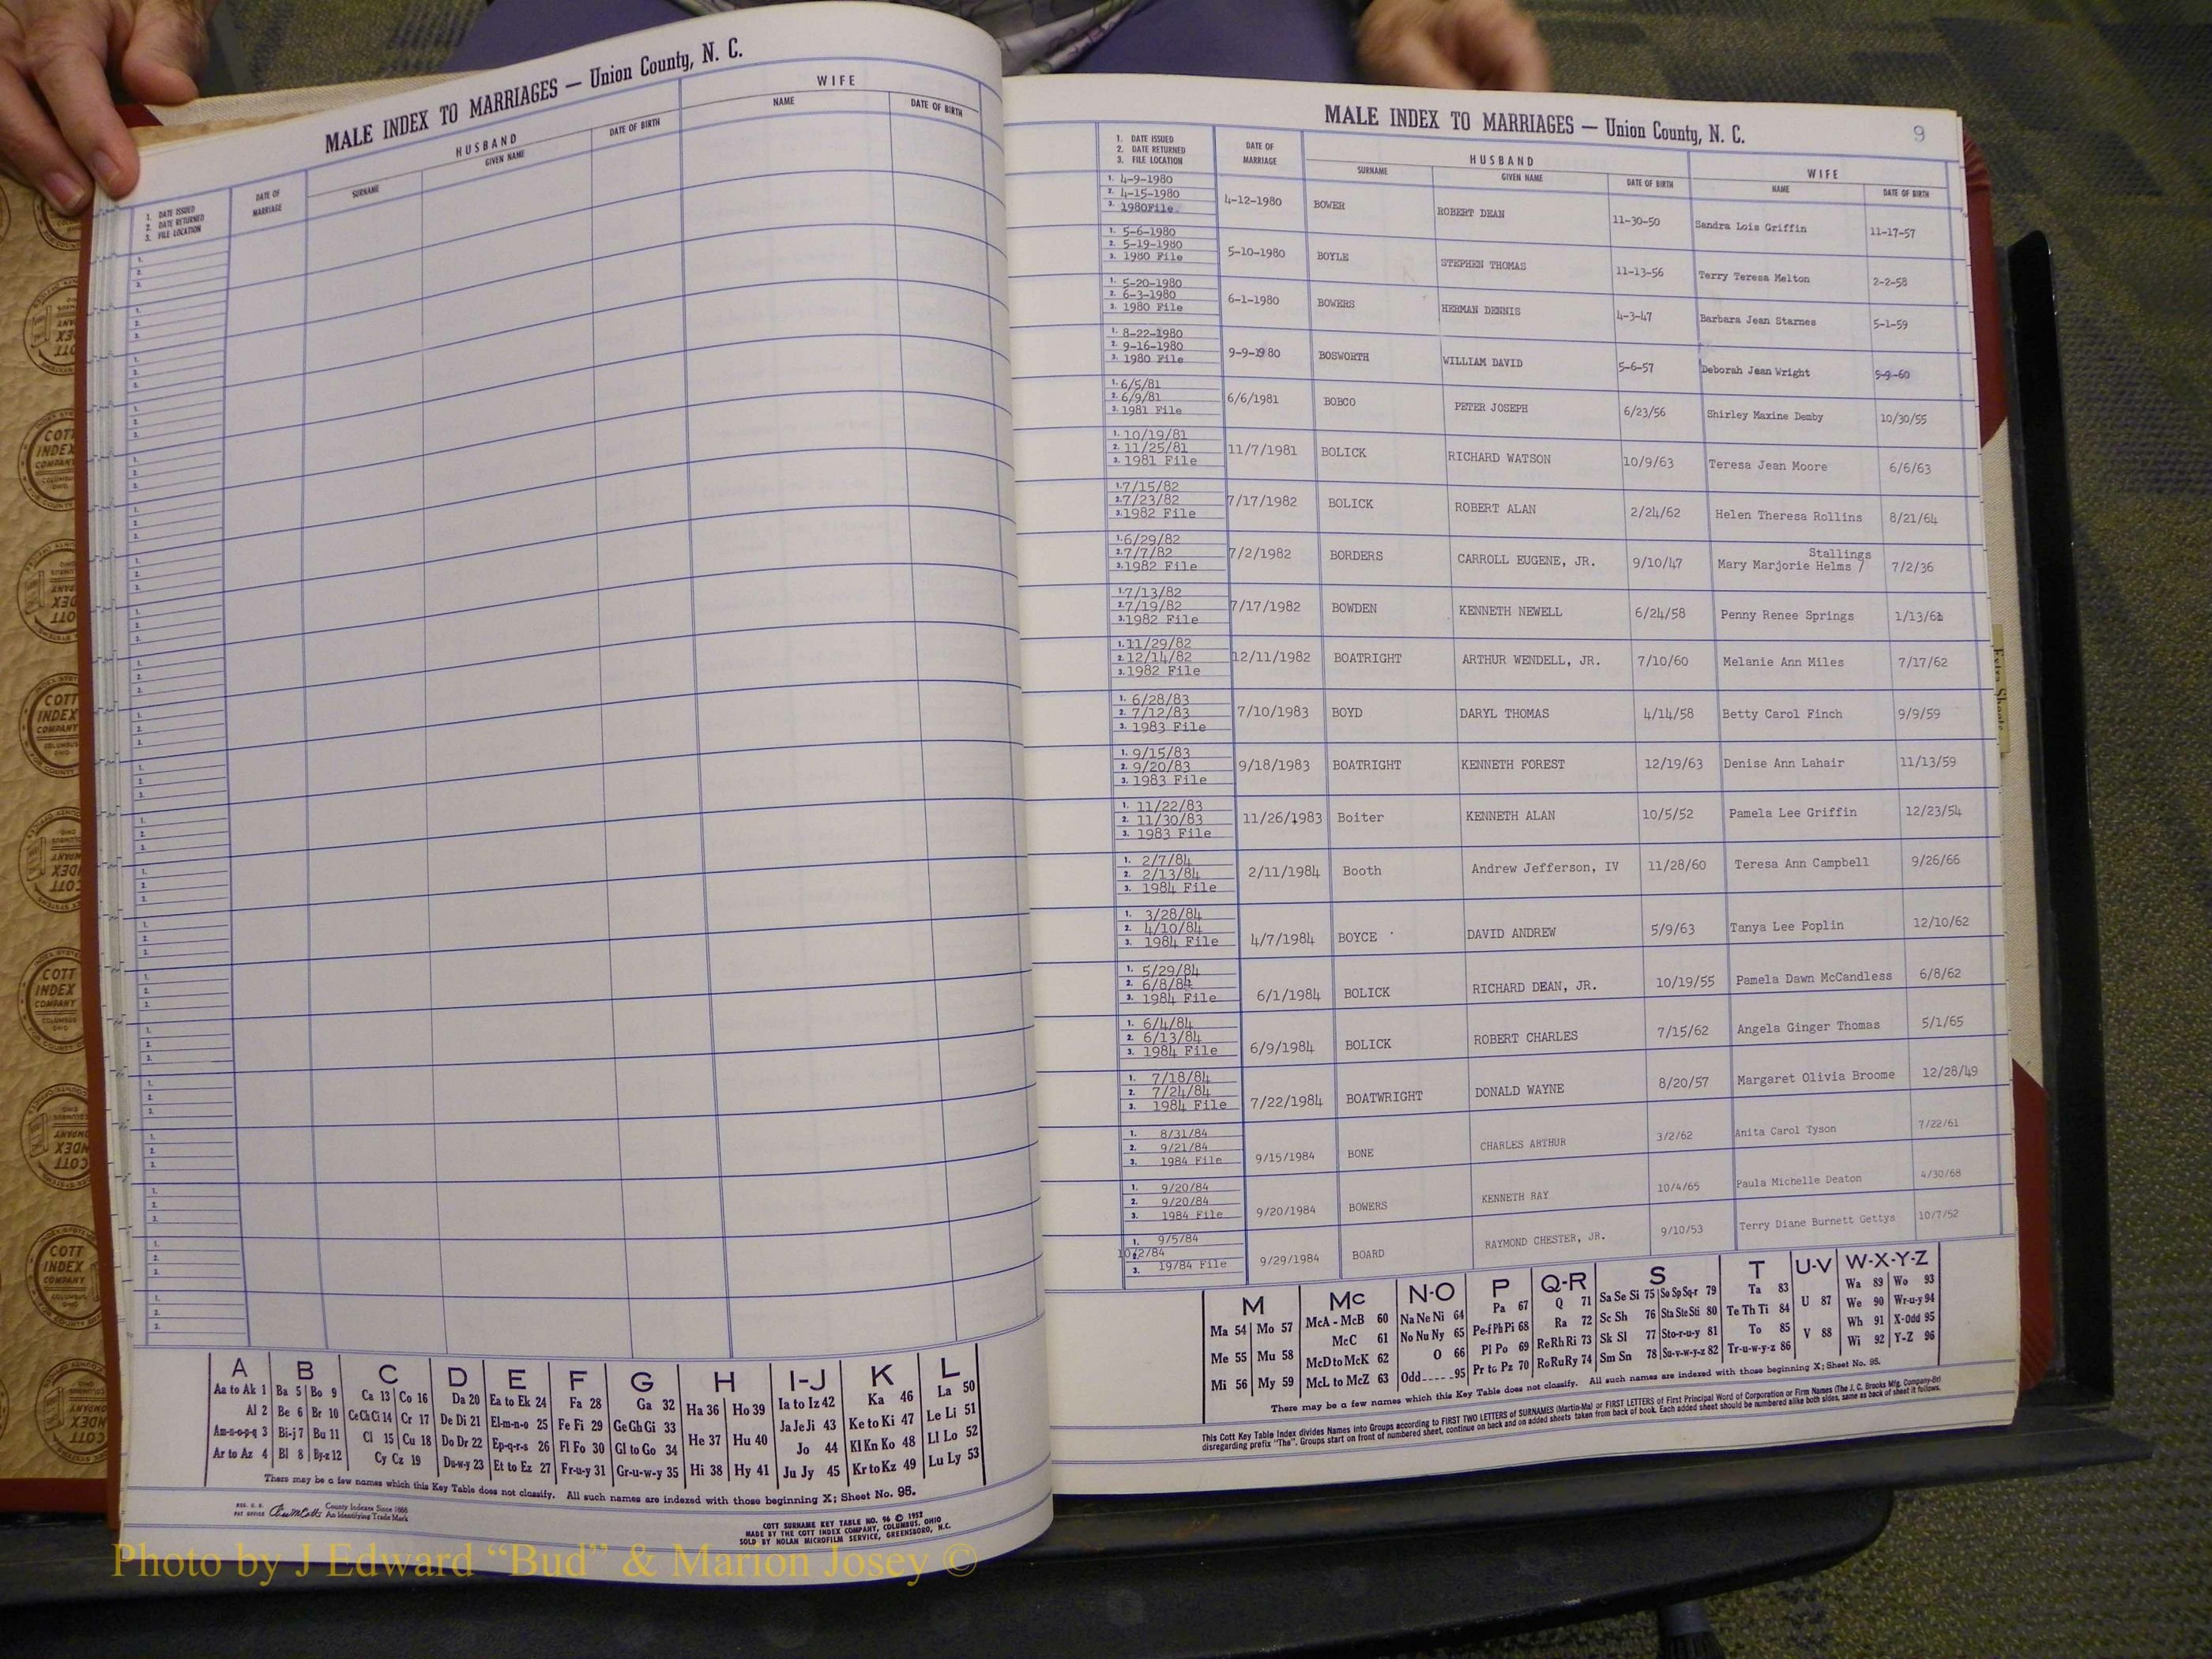 MALE INDEX TO MARRIAGES — Union County, N. C.
HUSBAND
WIFE
1. DATE ISSUED
2. DATE RETURNED
3. FILE LOCATION
DATE OF MARRIAGE
SURNAME
GIVEN NAME
DATE OF BIRTH
NAME
DATE OF BIRTH
A B C D E F G H I-J K L
Aa to Ak 1 Ba 5 Bo 9 Ca 13 Co 16 Da 20 Ea to Ek 24 Fa 28 Ga 32 Ha 36 Ho 39 Ia to Iz 42 Ka 46 La 50
Al 2 Be 6 Br 10 Ce Ch Ci 14 Cr 17 De Di 21 El-m-n-o 25 Fe Fi 29 Ge Gh Gi 33 He 37 Hu 40 Ja Je Ji 43 Ke to Ki 47 Le Li 51
Am-n-o-p-q 3 Bi-j 7 Bu 11 Cl 15 Cu 18 Do Dr 22 Ep-q-r-s 26 Fl Fo 30 Gl to Go 34 Hi 38 Hy 41 Jo 44 Kl Kn Ko 48 Ll Lo 52
Ar to Az 4 Bl 8 By-z 12 Cy Cz 19 Du-w-y 23 Et to Ez 27 Fr-u-y 31 Gr-u-w-y 35 Ju Jy 45 Kr to Kz 49 Lu Ly 53
There may be a few names which this Key Table does not classify. All such names are indexed with those beginning X; Sheet No. 95.
County Indexes Since 1888
An Identifying Trade Mark
COTT SURNAME KEY TABLE NO. 96 © 1952
MADE BY THE COTT INDEX COMPANY, COLUMBUS, OHIO
SOLD BY NOLAN MICROFILM SERVICE, GREENSBORO, N.C.
MALE INDEX TO MARRIAGES — Union County, N. C.
9
1. DATE ISSUED
2. DATE RETURNED
3. FILE LOCATION
DATE OF MARRIAGE
HUSBAND
SURNAME
GIVEN NAME
DATE OF BIRTH
WIFE
NAME
DATE OF BIRTH
1. 4-9-1980
2. 4-15-1980
3. 1980File
4-12-1980 BOWER ROBERT DEAN 11-30-50 Sandra Lois Griffin 11-17-57
1. 5-6-1980
2. 5-19-1980
3. 1980 File
5-10-1980 BOYLE STEPHEN THOMAS 11-13-56 Terry Teresa Melton 2-2-58
1. 5-20-1980
2. 6-3-1980
3. 1980 File
6-1-1980 BOWERS HERMAN DENNIS 4-3-47 Barbara Jean Starnes 5-1-59
1. 8-22-1980
2. 9-16-1980
3. 1980 File
9-9-1980 BOSWORTH WILLIAM DAVID 5-6-57 Deborah Jean Wright 5-9-60
1. 6/5/81
2. 6/9/81
3. 1981 File
6/6/1981 BOBCO PETER JOSEPH 6/23/56 Shirley Maxine Demby 10/30/55
1. 10/19/81
2. 11/25/81
3. 1981 File
11/7/1981 BOLICK RICHARD WATSON 10/9/63 Teresa Jean Moore 6/6/63
1. 7/15/82
2. 7/23/82
3. 1982 File
7/17/1982 BOLICK ROBERT ALAN 2/24/62 Helen Theresa Rollins 8/21/64
1. 6/29/82
2. 7/7/82
3. 1982 File
Stallings
7/2/1982 BORDERS CARROLL EUGENE, JR. 9/10/47 Mary Marjorie Helms / 7/2/36
1. 7/13/82
2. 7/19/82
3. 1982 File
7/17/1982 BOWDEN KENNETH NEWELL 6/24/58 Penny Renee Springs
1. 11/29/82
2. 12/14/82
3. 1982 File
12/11/1982 BOATRIGHT ARTHUR WENDELL, JR. 7/10/60 Melanie Ann Miles 7/17/62
1. 6/28/83
2. 7/12/83
3. 1983 File
7/10/1983 BOYD DARYL THOMAS 4/14/58 Betty Carol Finch 9/9/59
1. 9/15/83
2. 9/20/83
3. 1983 File
9/18/1983 BOATRIGHT KENNETH FOREST 12/19/63 Denise Ann Lahair 11/13/59
1. 11/22/83
2. 11/30/83
3. 1983 File
11/26/1983 Boiter KENNETH ALAN 10/5/52 Pamela Lee Griffin 12/23/54
1. 2/7/84
2. 2/13/84
3. 1984 File
2/11/1984 Booth Andrew Jefferson, IV 11/28/60 Teresa Ann Campbell 9/26/66
1. 3/28/84
2. 4/10/84
3. 1984 File
4/7/1984 BOYCE DAVID ANDREW 5/9/63 Tanya Lee Poplin 12/10/62
1. 5/29/84
2. 6/8/84
3. 1984 File
6/1/1984 BOLICK RICHARD DEAN, JR. 10/19/55 Pamela Dawn McCandless 6/8/62
1. 6/4/84
2. 6/13/84
3. 1984 File
6/9/1984 BOLICK ROBERT CHARLES 7/15/62 Angela Ginger Thomas 5/1/65
1. 7/18/84
2. 7/24/84
3. 1984 File
7/22/1984 BOATWRIGHT DONALD WAYNE 8/20/57 Margaret Olivia Broome 12/28/49
1. 8/31/84
2. 9/21/84
3. 1984 File
9/15/1984 BONE CHARLES ARTHUR 3/2/62 Anita Carol Tyson 7/22/61
1. 9/20/84
2. 9/20/84
3. 1984 File
9/20/1984 BOWERS KENNETH RAY 10/4/65 Paula Michelle Deaton 4/30/68
1. 9/5/84
2. 10/2/84
3. 19/84 File
9/29/1984 BOARD RAYMOND CHESTER, JR. 9/10/53 Terry Diane Burnett Gettys 10/7/52
M Mc N-O P Q-R S T U-V W-X-Y-Z
Ma 54 Mo 57 McA - McB 60 Na Ne Ni 64 Pa 67 Q 71 Sa Se Si 75 So Sp Sq-r 79 Ta 83 U 87 Wa 89 Wo 93
Me 55 Mu 58 McC 61 No Nu Ny 65 Pe-f Ph Pi 68 Ra 72 Sc Sh 76 Sta Ste Sti 80 Te Th Ti 84 V 88 We 90 Wr-u-y 94
Mi 56 My 59 McD to McK 62 O 66 Pl Po 69 Re Rh Ri 73 Sk Sl 77 Sto-r-u-y 81 To 85 Wh 91 X-Odd 95
McL to McZ 63 Odd 95 Pr to Pz 70 Ro Ru Ry 74 Sm Sn 78 Su-v-w-y-z 82 Tr-u-w-y-z 86 Wi 92 Y-Z 96
There may be a few names which this Key Table does not classify. All such names are indexed with those beginning X; Sheet No. 95.
This Cott Key Table Index divides Names into Groups according to FIRST TWO LETTERS of SURNAMES (Martin-Ma) or FIRST LETTERS of First Principal Word of Corporation or Firm Names (The J. C. Brooks Mfg. Company-Br)
disregarding prefix "The". Groups start on front of numbered sheet, continue on back and on added sheets taken from back of book. Each added sheet should be numbered alike both sides, same as back of sheet it follows.
Extra Sheets
COTT INDEX COMPANY
COLUMBUS OHIO
Photo by J Edward “Bud” & Marion Josey ©